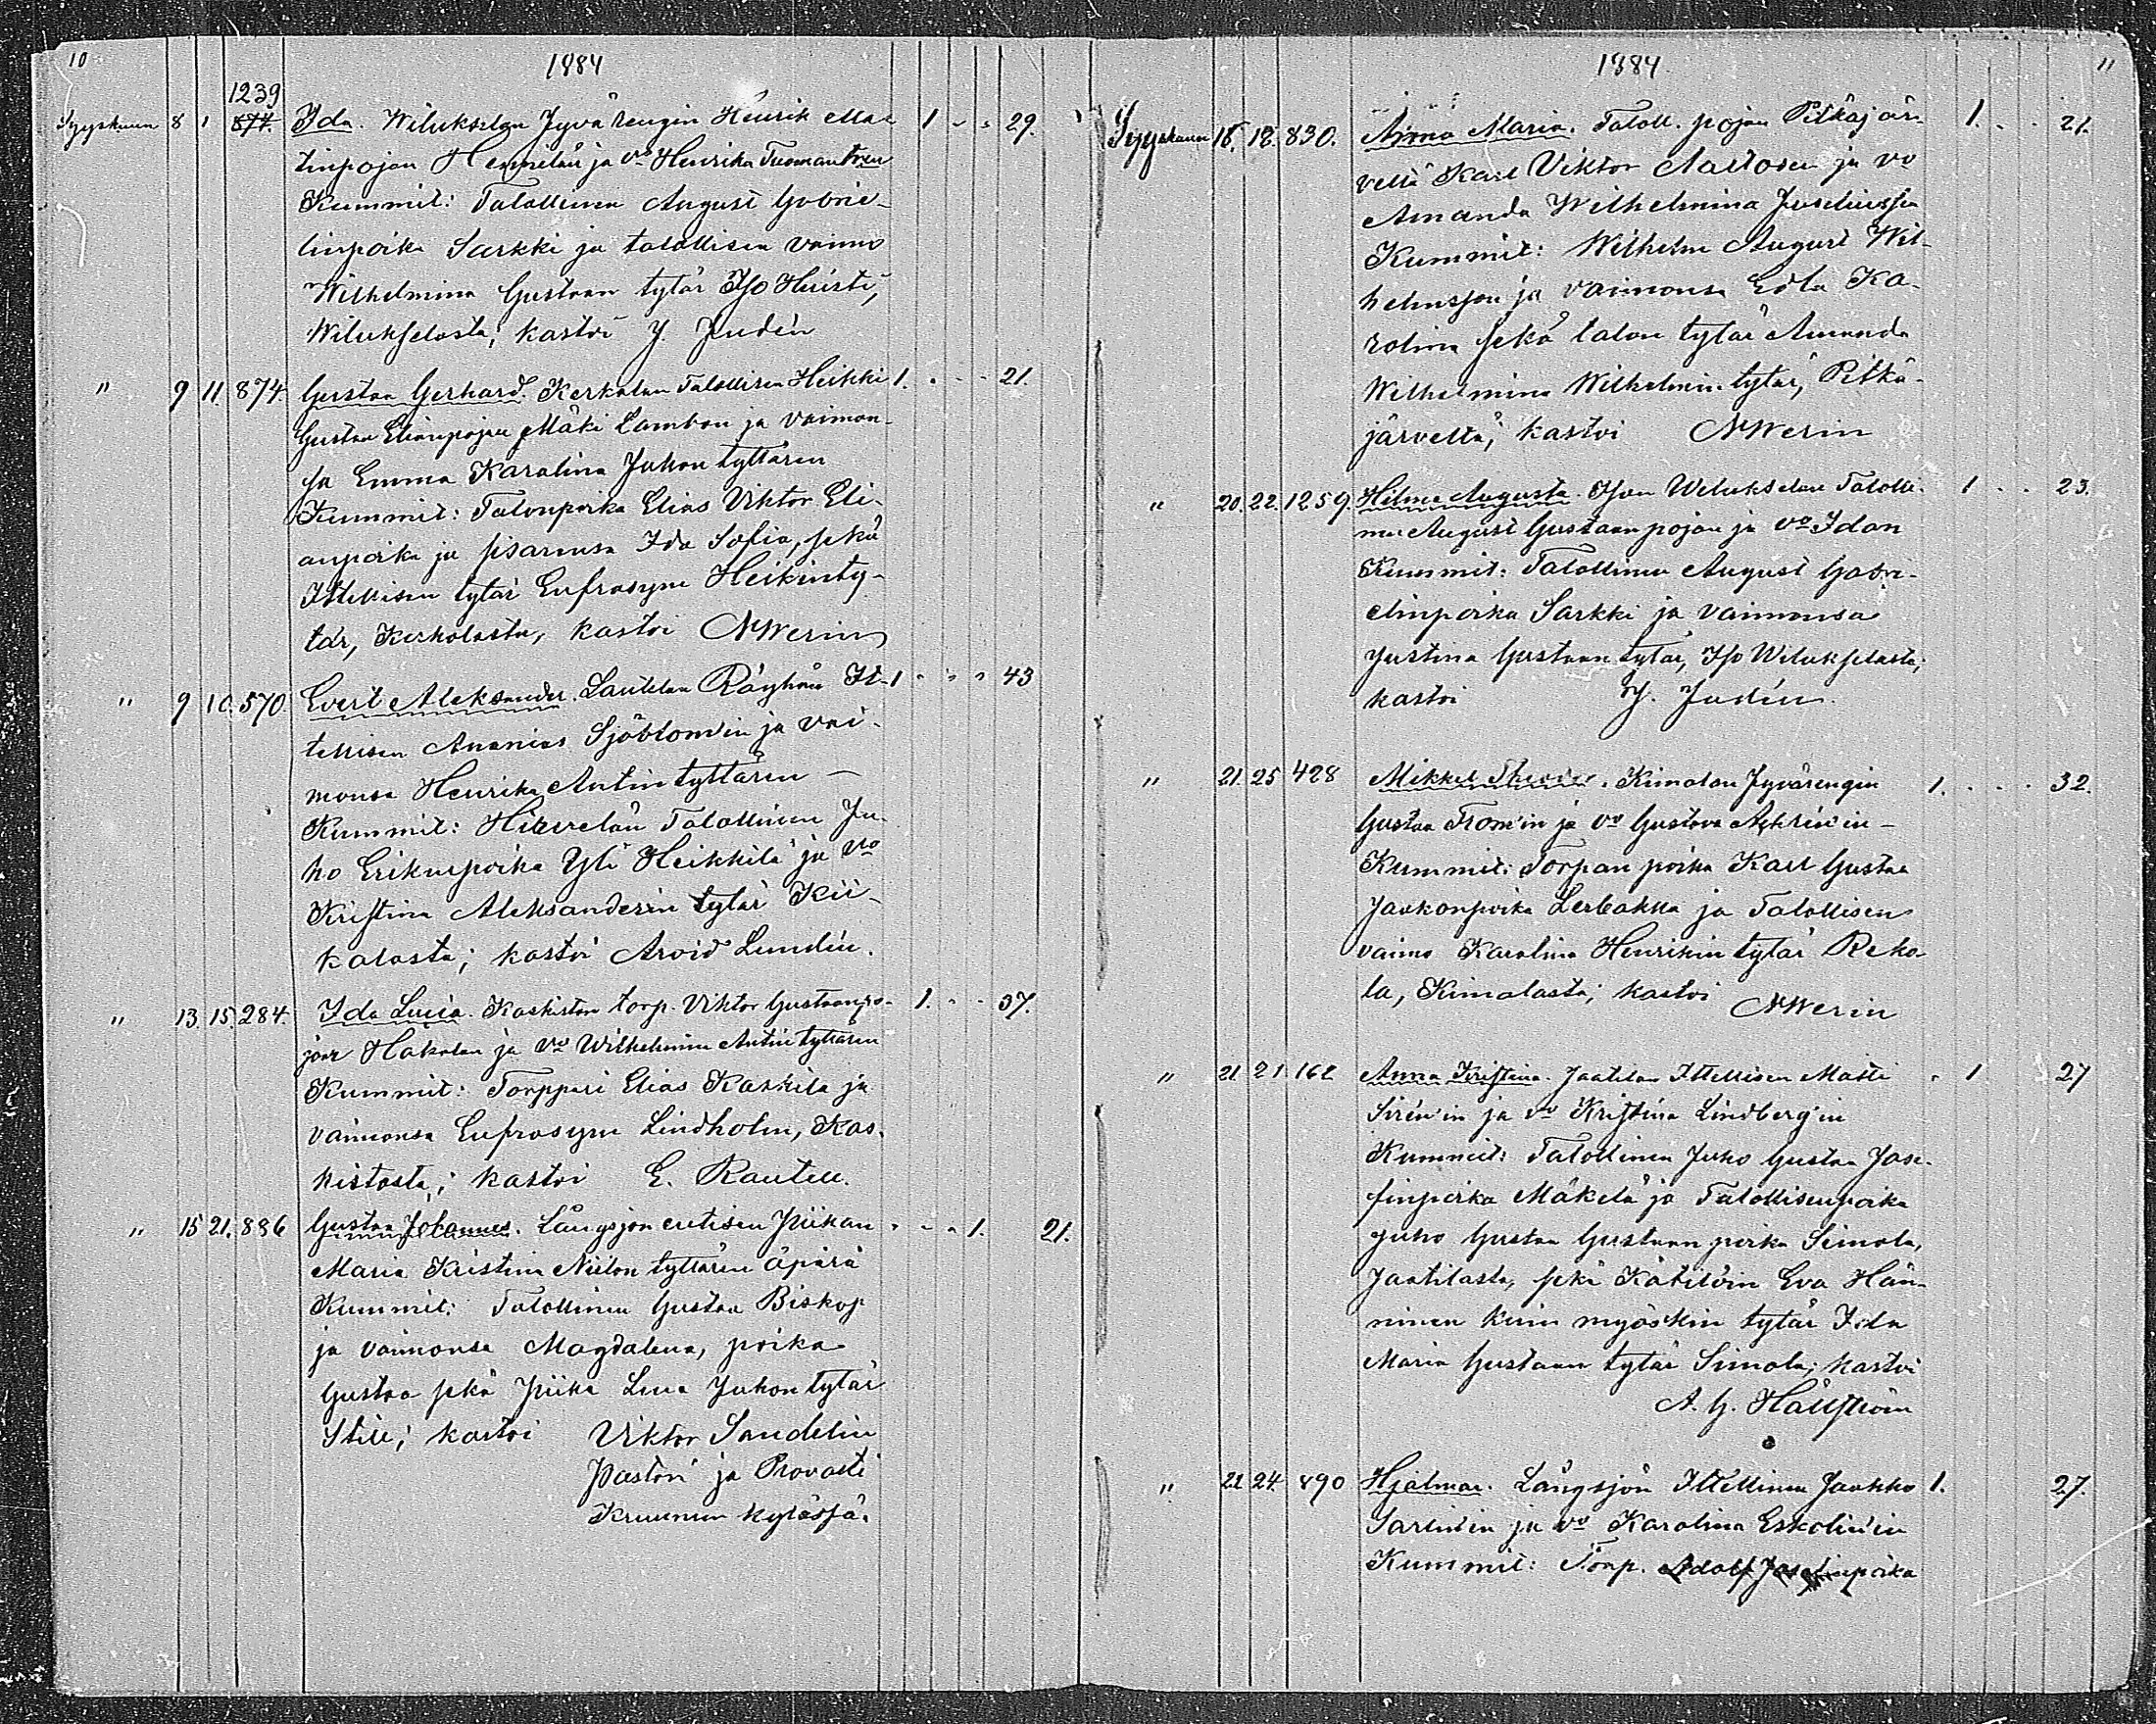 10
1884
1239
Syyskuun 8 " 874. Ida. Wilukselan Jyvä rengin Henrik Mat- 1 - - 29.
tinpojan Hennilän ja vo Henrika Tuomaantren
Kummit: Talollinen August Gabrie-
linpoika Sarkki ja talollisen vaimo
Wilhelmina Gustaan tytär Iso Heisti,
Wilukselasta; kastoi J. Judén
" 9 11. 874. Gustaa Gerhard. Kerkolan Talollisen Heikki 1. - - 21.
Gustaa Elianpojan Mäki Lambon ja vaimon-
sa Emma Karalina Juhon tyttären
Kummit: Talonpoika Elias Viktor Eli-
anpoika ja sisarensa Ida Sofia, sekä
Ittellisen tytär Eufrosyne Heikinty-
tär, Kerkolasta, kastoi NWerin
" 9 10. 570 Evert Aleksander. Lautelan Räyhän It- 1 - - - 43
tellisen Ananias Sjöblom'in ja vai-
monsa Henrika Antin tyttären —
Kummit: Talollinen Ju-
ho Erikinpoika Yli Heikkilä ja vo
Kristina Aleksanderin tytär Kii-
kalasta; kastoi Arvid Lundén.
" 13. 15. 284. Ida Lucia. Kaskiston torp. Viktor Gustaanpo- 1. - - 37.
jan Hakalan ja vo Wilhelmina Antin tyttären
Kummit: Torppari Elias Kaskila ja
vaimonsa Eufrosyne Lindholm, Kas-
kistosta; kastoi E. Rautell.
" 15 21. 886 Gustaa Johannes. Långsjön entisen Piikan - - - 1. 21.
Maria Kristina Niilon tyttären äpärä
Kummit: Talollinen Gustaa Biskop
ja vaimonsa Magdalena, poika
Gustaa sekä Piika Lena Juhon tytär
Still; kastoi Viktor Sandelin
Pastori ja Provasti
Kruunun kylässä.
1884
11
Syyskuun 18. 18. 830. Anna Maria. Taloll. pojan Pitkäjär- 1. - - 21.
veltä Karl Viktor Aaltosen ja vo
Amanda Wilhelmina Juseliussen
Kummit: Wilhelm August Wil-
helmsson ja vaimonsa Edla Ka-
rolina sekä talon tytär Amanda
Wilhelmina Wilhelmin tytär, Pitkä-
järveltä; kastoi NWerin
" 20. 22. 1259. Hilma Augusta. Ison Wilukselan Talolli- 1 - - 23.
nen August Gustaanpojan ja vo Idan
Kummit: Talollinen August Gabri-
elinpoika Sarkki ja vaimonsa
Justina Gustaan tytär, Iso Wilukselasta;
kastoi J. Judén.
" 21. 25 428 Mikkel Theodor. Kimalan Jyvärengin 1. - - - 32.
Gustaa From'in ja vo Gustava
Kummit: Torpan poika Karl Gustaa
Jaakonpoika Lerbakka ja Talollisen
vaimo Karolina Henrikin tytär Reko-
la, Kimalasta; kastoi NWerin
" 21. 21 162 Anna Kristina. Jaatilan Ittellisen Matti - 1 27
Sirén'in ja vo Kristina Lindberg'in
Kummit: Talollinen Juho Gustaa Jose-
finpoika Mäkelä ja Talollisenpoika
Juho Gustaa Gustaan poika Simola,
Jaatilasta, sekä Kätilöin Eva Hän-
ninen kuin myöskin tytär Ida
Maria Gustaan tytär Simola; kastoi
A. G. Hällström
" 22 24. 890 Hjalmar. Långsjön Ittellinen Jaakko 1. 27.
Sarlin'in ja vo Karolina Eskolin'in
Kummit: Torp. Adolf Josefinpoika